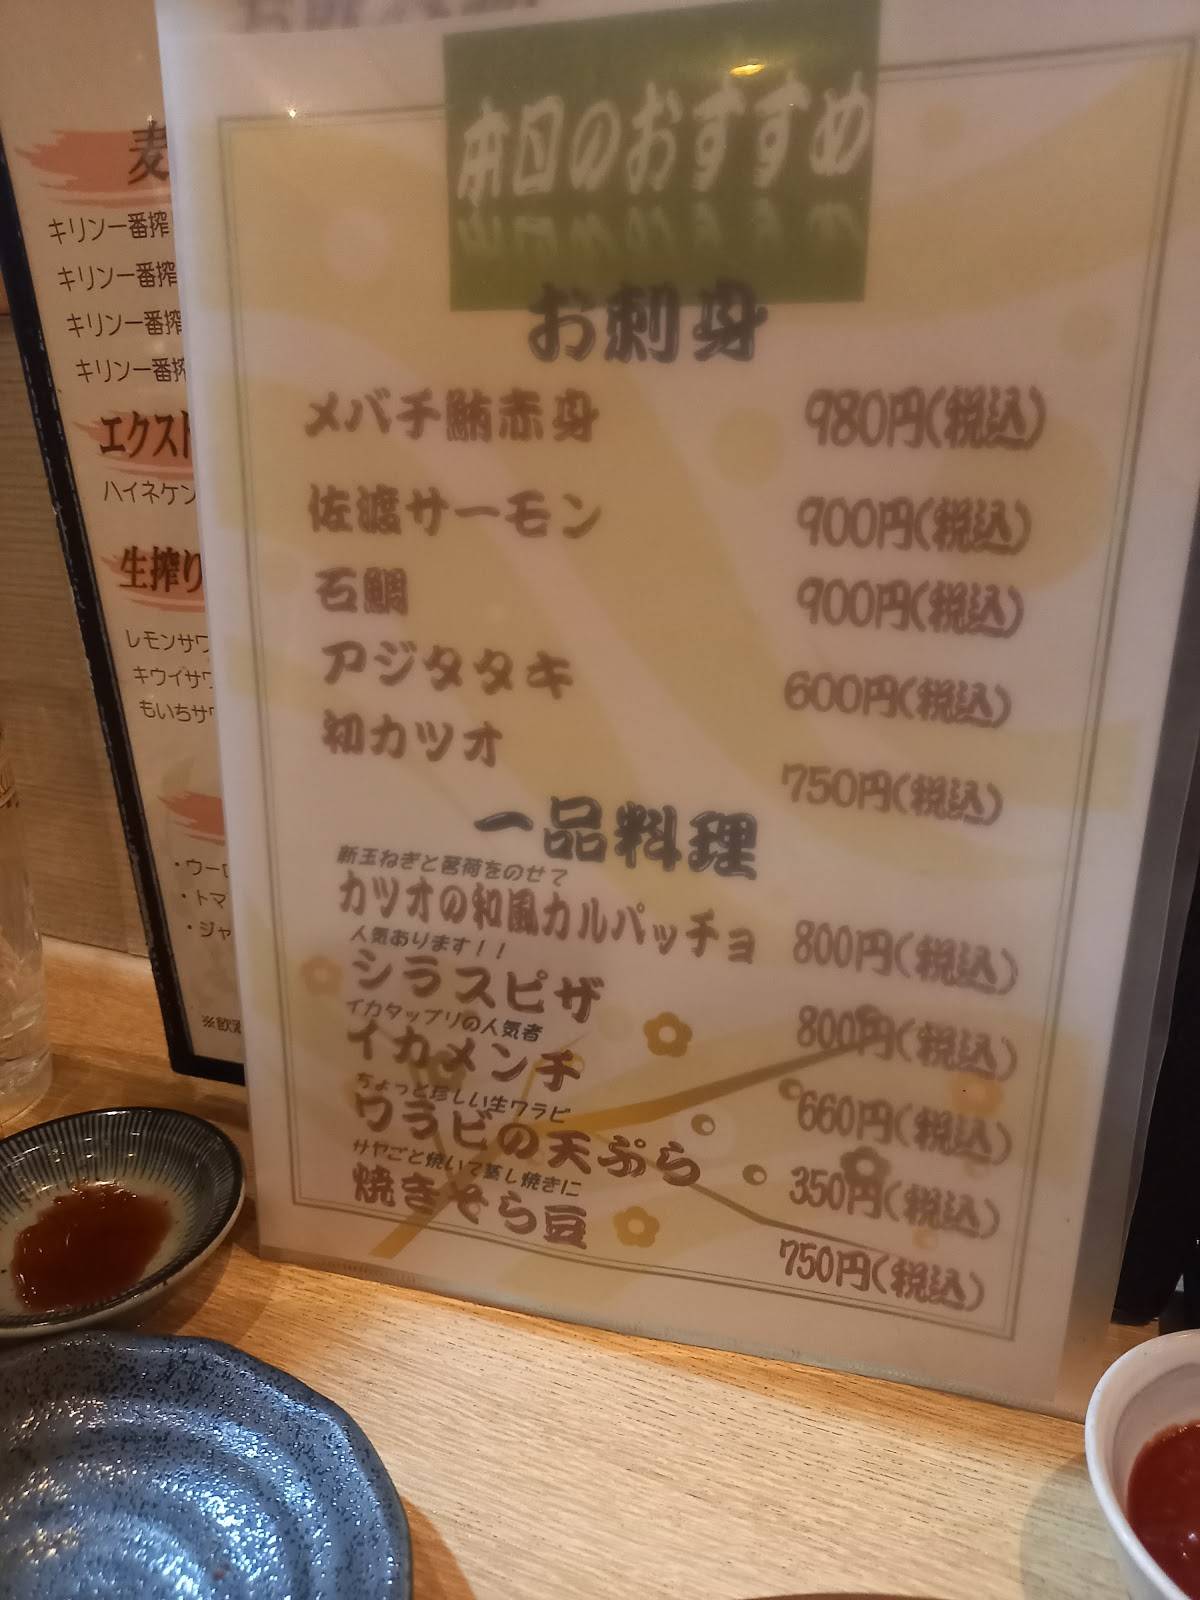 本日のおすすめ
お刺身
メバチ鮪赤身 980円(税込)
佐渡サーモン 900円(税込)
石鯛 900円(税込)
アジタタキ 600円(税込)
初カツオ 750円(税込)
一品料理
新玉ねぎと茗荷をのせて
カツオの和風カルパッチョ 800円(税込)
人気あります!!
シラスピザ 800円(税込)
イカタップリの人気者
イカメンチ 660円(税込)
ちょっと珍しい生ワラビ
ワラビの天ぷら 350円(税込)
サヤごと焼いて蒸し焼きに
焼きそら豆 750円(税込)
麦
キリン一番搾
キリン一番搾
キリン一番搾
キリン一番搾
エクスト
ハイネケン
生搾り
レモンサワ
キウイサワ
もいちサワ
・ウーロ
・トマ
・ジャ
※飲